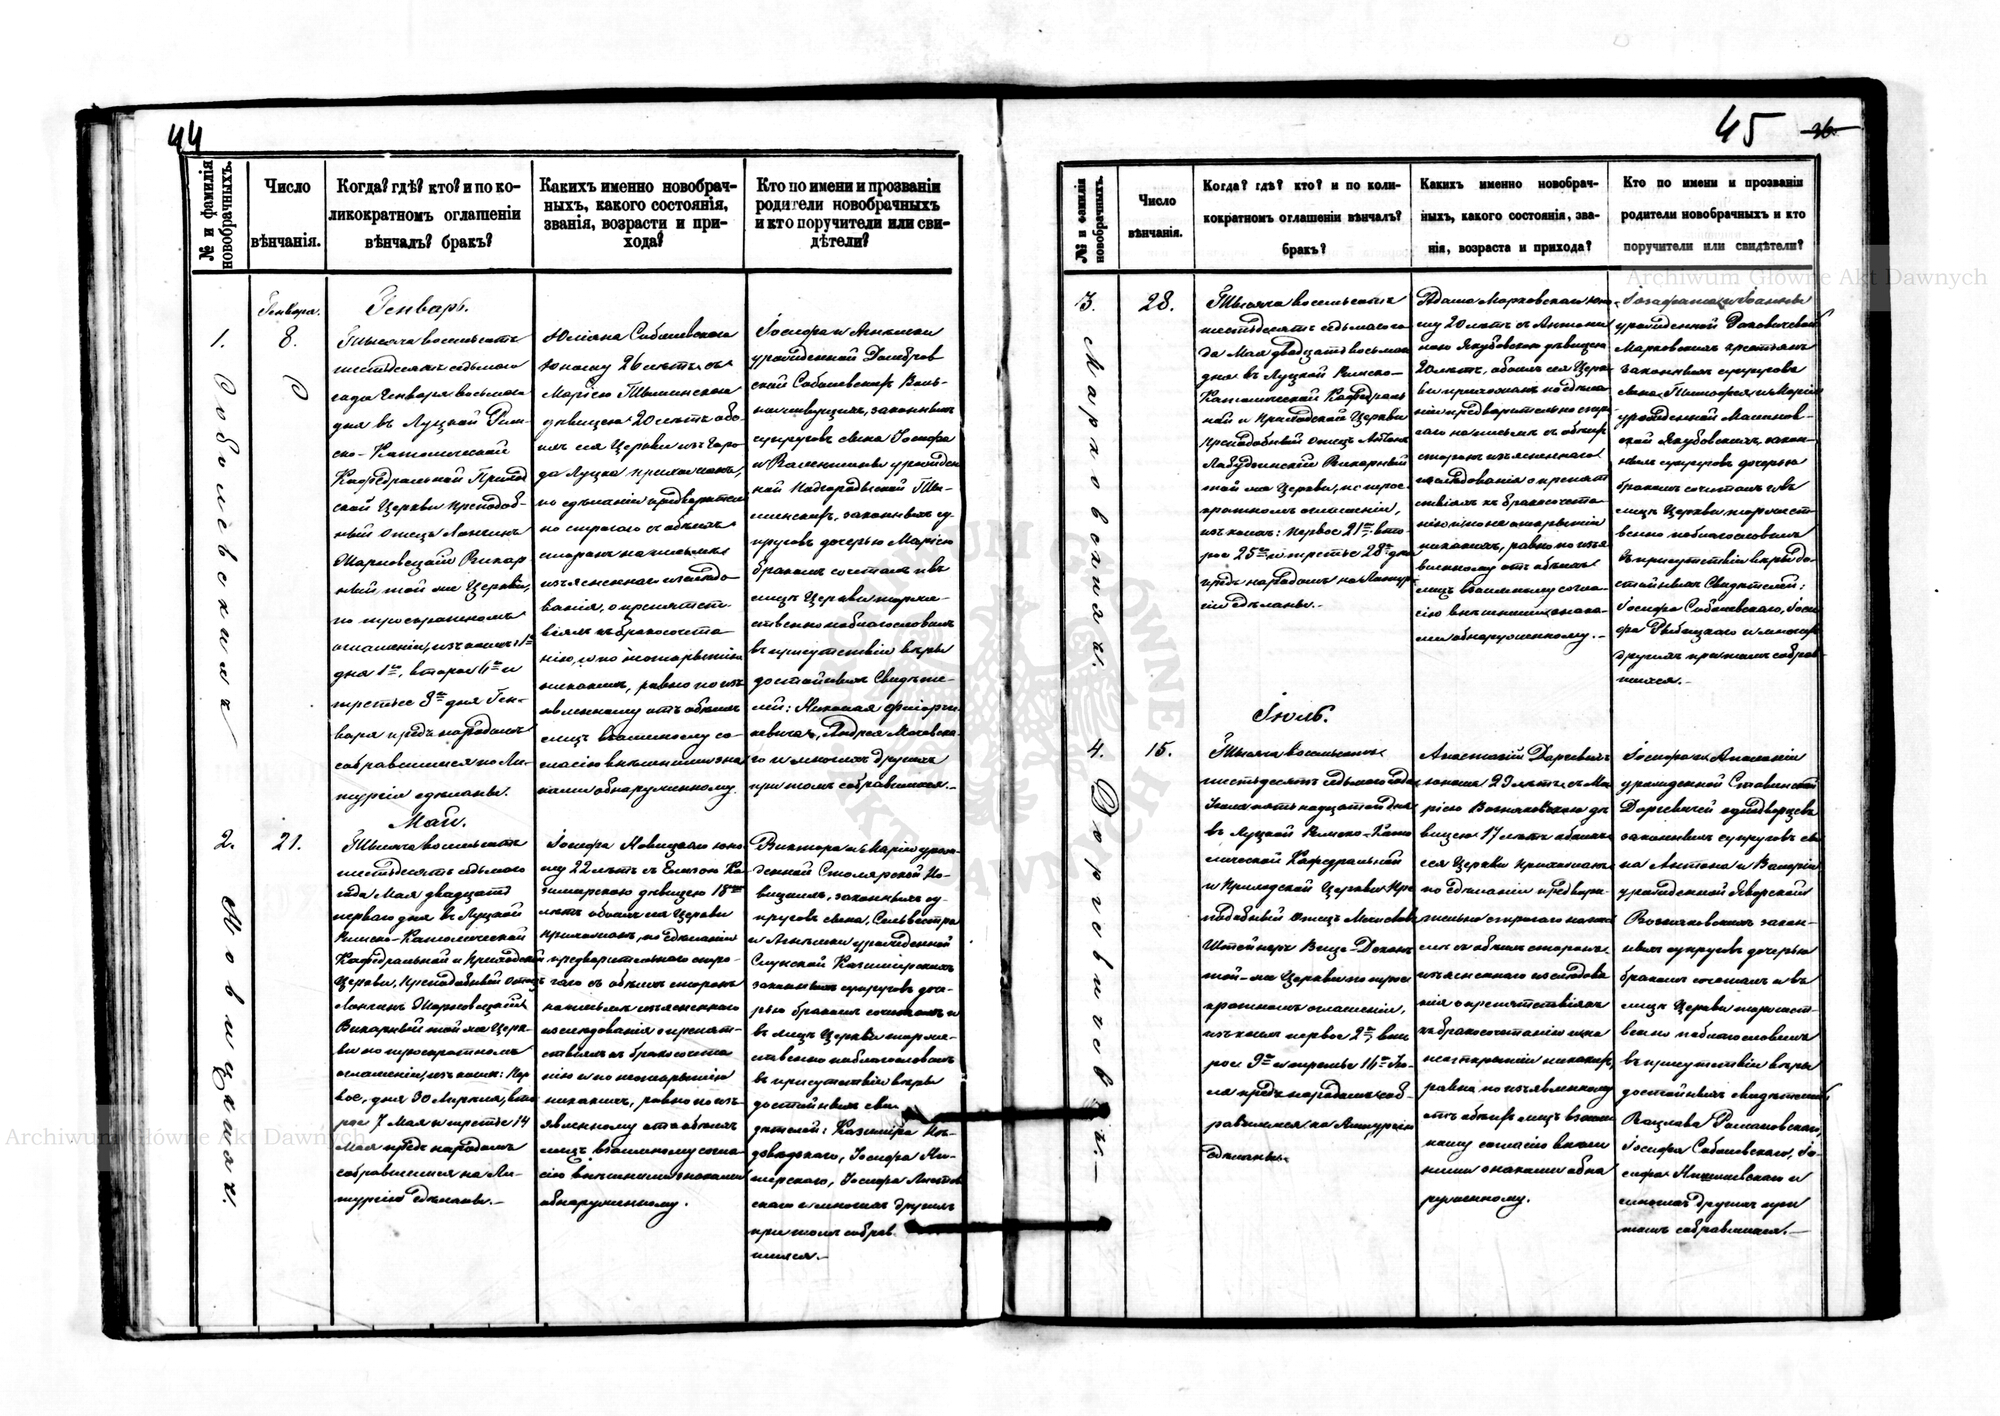 44
№ и фамилія новобрачныхъ.
Число
вѣнчанія.
Когда? гдѣ? кто? и по ко-
ликократномъ оглашеніи
вѣнчалъ? бракъ?
Какихъ именно новобрач-
ныхъ, какого состоянія,
званія, возрасти и при-
хода?
Кто по имени и прозваніи
родители новобрачныхъ
и кто поручители или сви-
дѣтели?
1.
Генваря.
8.
Генварь.
Тысяча восемьсотъ
шестьдесятъ седьмаго
года Генваря восьмаго
дня въ Луцкой Рим-
ско-Католической
Кафедральной Приход-
ской Церкви преподоб-
ный Отецъ Лонгинъ
Викар-
ный той же Церкви,
по троекратномъ
оглашеніи, изъ коихъ: 1е
дня 1го, второе 6го и
третье 8го дня Ген-
варя предъ народомъ
собравшимся на Ли-
тургіи сдѣланы.
Юліана Собалевскаго
юношу 26 лѣтъ съ
Марією Тышинскою
дѣвицею 20 лѣтъ обо-
ихъ сея Церкви изъ горо-
да Луцка прихожанъ,
по сдѣланіи предварител-
но строгаго съ обѣихъ
сторонъ на письмѣ
изъясненнаго изслѣдо-
ванія, о препятст-
віяхъ къ бракосочета-
нію, и по неоткрытію
никакихъ, равно по изъ-
явленному отъ обѣихъ
лицъ взаимному со-
гласію внѣшними зна-
ками обнаруженному.
Іосифа и Анны
урожденной Домбров-
ской Собалевскихъ Воль-
ноживущихъ, законныхъ
супруговъ сына Іосифа
и Валентины урожден-
ной Подгородецкой Ты-
шинскихъ, законныхъ су-
пруговъ дочерью Марією
бракомъ сочеталъ и въ
лицѣ Церкви торже-
ственно поблагословилъ
въ присутствіи вѣры
достойныхъ Свидѣте-
лей: Николая
Андрея
го и многихъ другихъ
при томъ собравшихся.-
2.
Новицкихъ.
21.
Май.
Тысяча восемьсотъ
шестьдесятъ седьмаго
года Мая двадцать
перваго дня въ Луцкой
Римско-Католической
Кафедральной и Приходской
Церкви, Преподобный Отецъ
Лонгинъ
Викарный той же Церк-
ви по троекратномъ
оглашеніи, изъ коихъ: пер-
вое, дня 30 Апрѣля, вто-
рое 7 Мая и третье 14
Мая предъ народомъ
собравшимся на Ли-
тургію сдѣланы.-
Іосифа Новицкаго юно-
шу 22 лѣтъ съ Ка-
зимирскою дѣвицею 18
лѣтъ обоихъ сея Церкви
прихожанъ, по сдѣланіи
предварительного стро-
гаго съ обѣихъ сторонъ
на письмѣ изъясненнаго
изслѣдованія о препят-
ствіяхъ къ бракосочета-
нію и по неоткрытію
никакихъ, равно по изъ-
явленному отъ обѣихъ
лицъ взаимному согла-
сію внѣшними знаками
обнаруженному.
Виктора и Маріи урож-
денной Столярской Но-
вицкихъ, законныхъ су-
пруговъ сына, Сильвестра
и Анны урожденной
Казимірскихъ
законныхъ супруговъ доч-
рью бракомъ сочеталъ и
въ лицѣ Церкви торже-
ственно поблагословилъ
въ присутствіи вѣры
достойныхъ сви-
дѣтелей: Казимира
Іосифа
Іосифа
скаго и многихъ другихъ
при томъ собрав-
шихся.-
45
№ и фамилія новобрачныхъ.
Число
вѣнчанія.
Когда? гдѣ? кто? и по коли-
кократномъ оглашеніи вѣнчалъ?
бракъ?
Какихъ именно новобрач-
ныхъ, какого состоянія, зва-
нія, возраста и прихода?
Кто по имени и прозваніи
родители новобрачныхъ и кто
поручители или свидѣтели?
3.
Марковскихъ.
28.
Тысяча восемьсотъ
шестьдесятъ седьмаго го-
да Мая двадцать восьмаго
дня въ Луцкой Римско-
Католической Кафедраль-
ной и Приходской Церкви
преподобный Отецъ Антонъ
Викарный
той же Церкви, по трое-
кратномъ оглашеніи,
изъ коихъ: первое 21го вто-
рое 25го и третье 28го дня
предъ народомъ на Литур-
гіи сдѣланы.-
Адама Марковскаго юно-
шу 20 лѣтъ съ Антони-
ною Якубовскою дѣвицею
20 лѣтъ, обоихъ сея Церк-
ви прихожанъ по сдѣла-
ніи предварительно стро-
гаго на письмѣ съ обѣихъ
сторонъ изъясненнаго
изслѣдованія о препят-
ствіяхъ къ бракосочета-
нію и по неоткрытіи
никакихъ, равно по изъя-
вленному отъ обѣихъ
лицъ взаимному согла-
сію внѣшними знака-
ми обнаруженному.-
и Іоанны
урожденной
Марковскихъ крестьянъ
законныхъ супруговъ
сына, Тимофея и Маріи
урожденной
Якубовскихъ, закон-
ныхъ супруговъ дочерью
бракомъ сочеталъ и въ
лицѣ Церкви торжест-
венно поблагословилъ
въ присутствіи вѣры до-
стойныхъ Свидѣтелей:
Іосифа Собалевскаго, Іоси-
фа и многихъ
другихъ при томъ собрав-
шихся.-
4.
Даревичевъ.-
15.
Іюль.
Тысяча восемьсотъ
шестьдесятъ седьмаго года
Іюля пятнадцатаго дня
въ Луцкой Римско-Като-
лической Кафедральной
и Приходской Церкви Пре-
подобный Отецъ
Штейнеръ Вице-Деканъ
той-же Церкви по трое-
кратномъ оглашеніи,
изъ коихъ первое 2го, вто-
рое 9го и третье 16го Ію-
ля предъ народомъ соб-
равшимся на Литургію
сдѣланы.
Даревича
юношу 23 лѣтъ съ Ма-
рією Возняковскою дѣ-
вицею 17 лѣтъ обоихъ
сея Церкви прихожанъ
по сдѣланіи предвари-
тельно строгаго на пись-
мѣ съ обѣихъ сторонъ
изъясненнаго изслѣдова-
нія о препятствіяхъ
къ бракосочетанію и по
неоткрытіи никакихъ,
равно по изъявленному
отъ обѣихъ лицъ взаим-
ному согласію внѣш-
ними знаками обна-
руженному.
Іосифа и Аполоніи
урожденной
Даревичей однодворцевъ
законныхъ супруговъ сы-
на Антона и Валеріи
урожденной Яворской
Возняковскихъ закон-
ныхъ супруговъ дочерью
бракомъ сочеталъ и въ
лицѣ Церкви торжест-
венно поблагословилъ
въ присутствіи вѣры
достойныхъ свидѣтелей
Вацлава Романовскаго,
Іосифа Собалевскаго, Іо-
сифа и
многихъ другихъ при
томъ собравшихся.-
Archiwum Główne Akt Dawnych
Archiwum Główne Akt Dawnych
ARCHIWUM GŁÓWNE AKT DAWNYCH